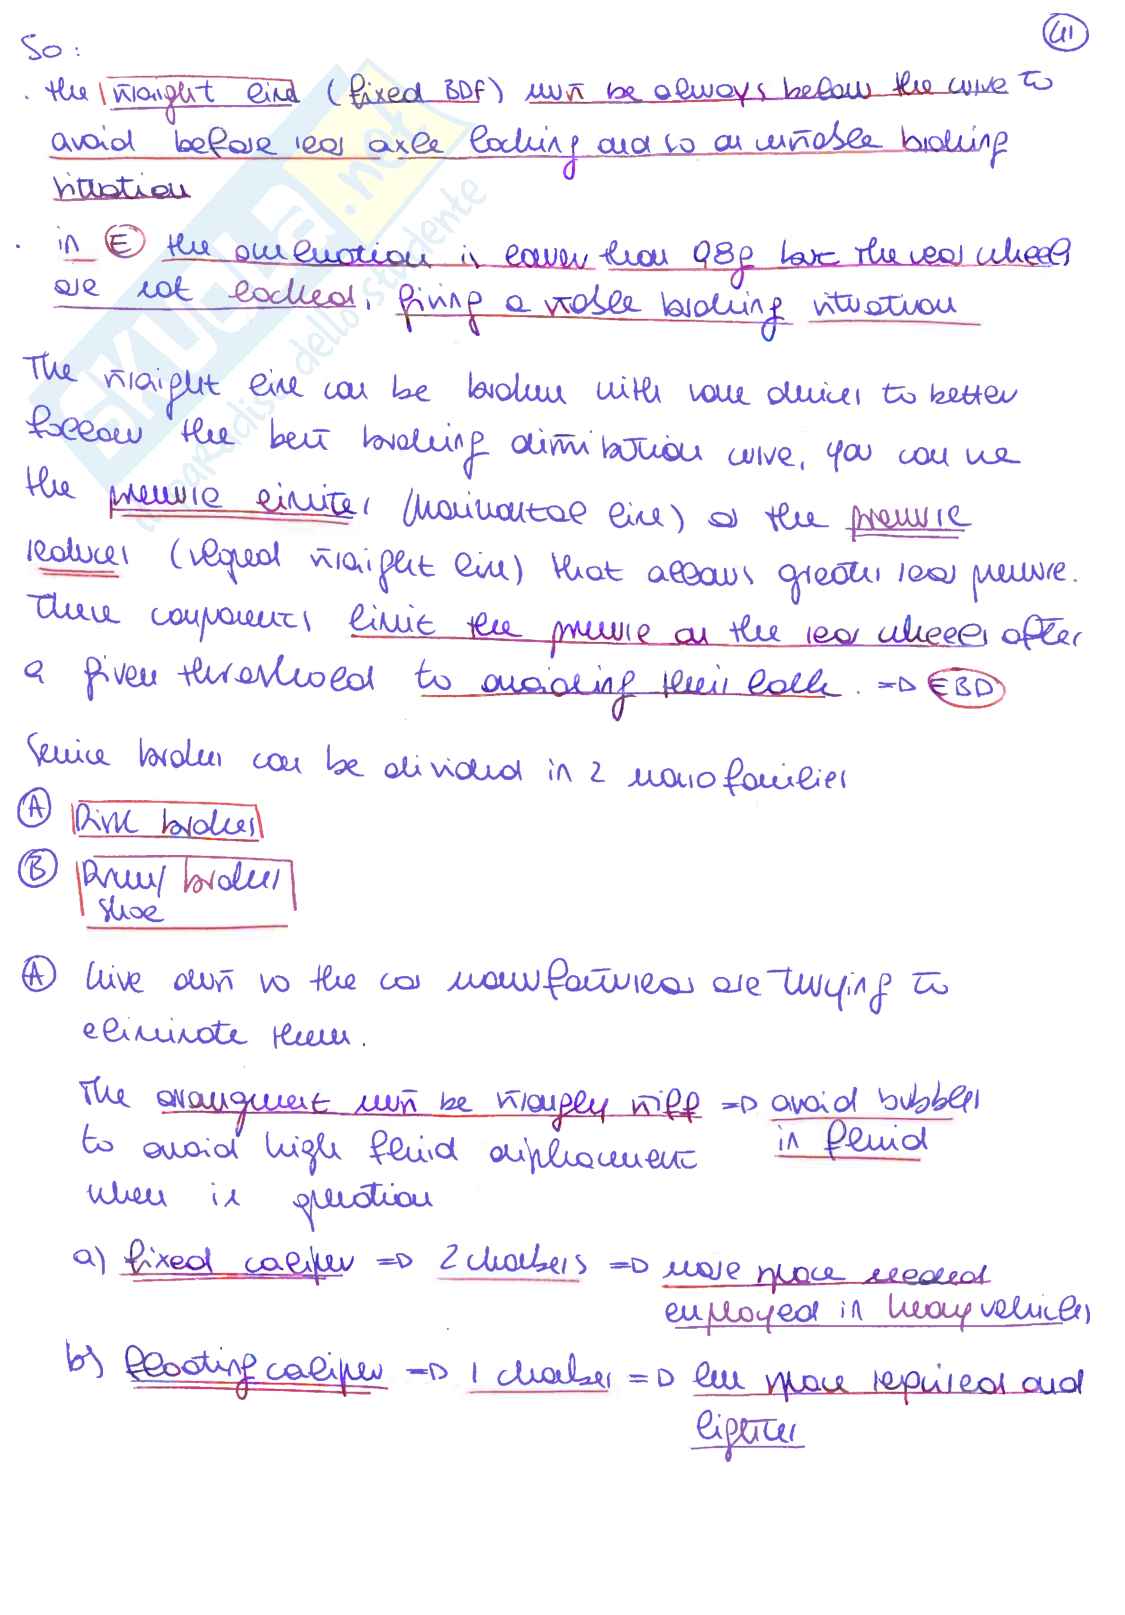 41
So:
. the straight line (fixed BDF) must be always below the curve to
avoid before rear axle locking and so an unstable braking
situation
. in E the deceleration is lower than 0.8g but the rear wheels
are not locked, giving a stable braking situation
The straight line can be broken with some devices to better
follow the best braking distribution curve, you can use
the pressure limiter (horizontal line) or the pressure
reducer (sloped straight line) that allows greater rear pressure.
These components limit the pressure on the rear wheels after
a given threshold to avoiding their lock. => EBD
Service brakes can be divided in 2 macrofamilies
A Disc brakes
B Drum/ brakes
shoe
A Give dust so the car manufacturers are trying to
eliminate them.
The arrangment must be strongly stiff => avoid bubbles
to avoid high fluid displacement in fluid
when in question
a) fixed caliper => 2 chambers => more space needed
employed in heavy vehicles
b) floating caliper => 1 chamber => less space required and
lighter
SKUOLA.net
il paradiso dello studente